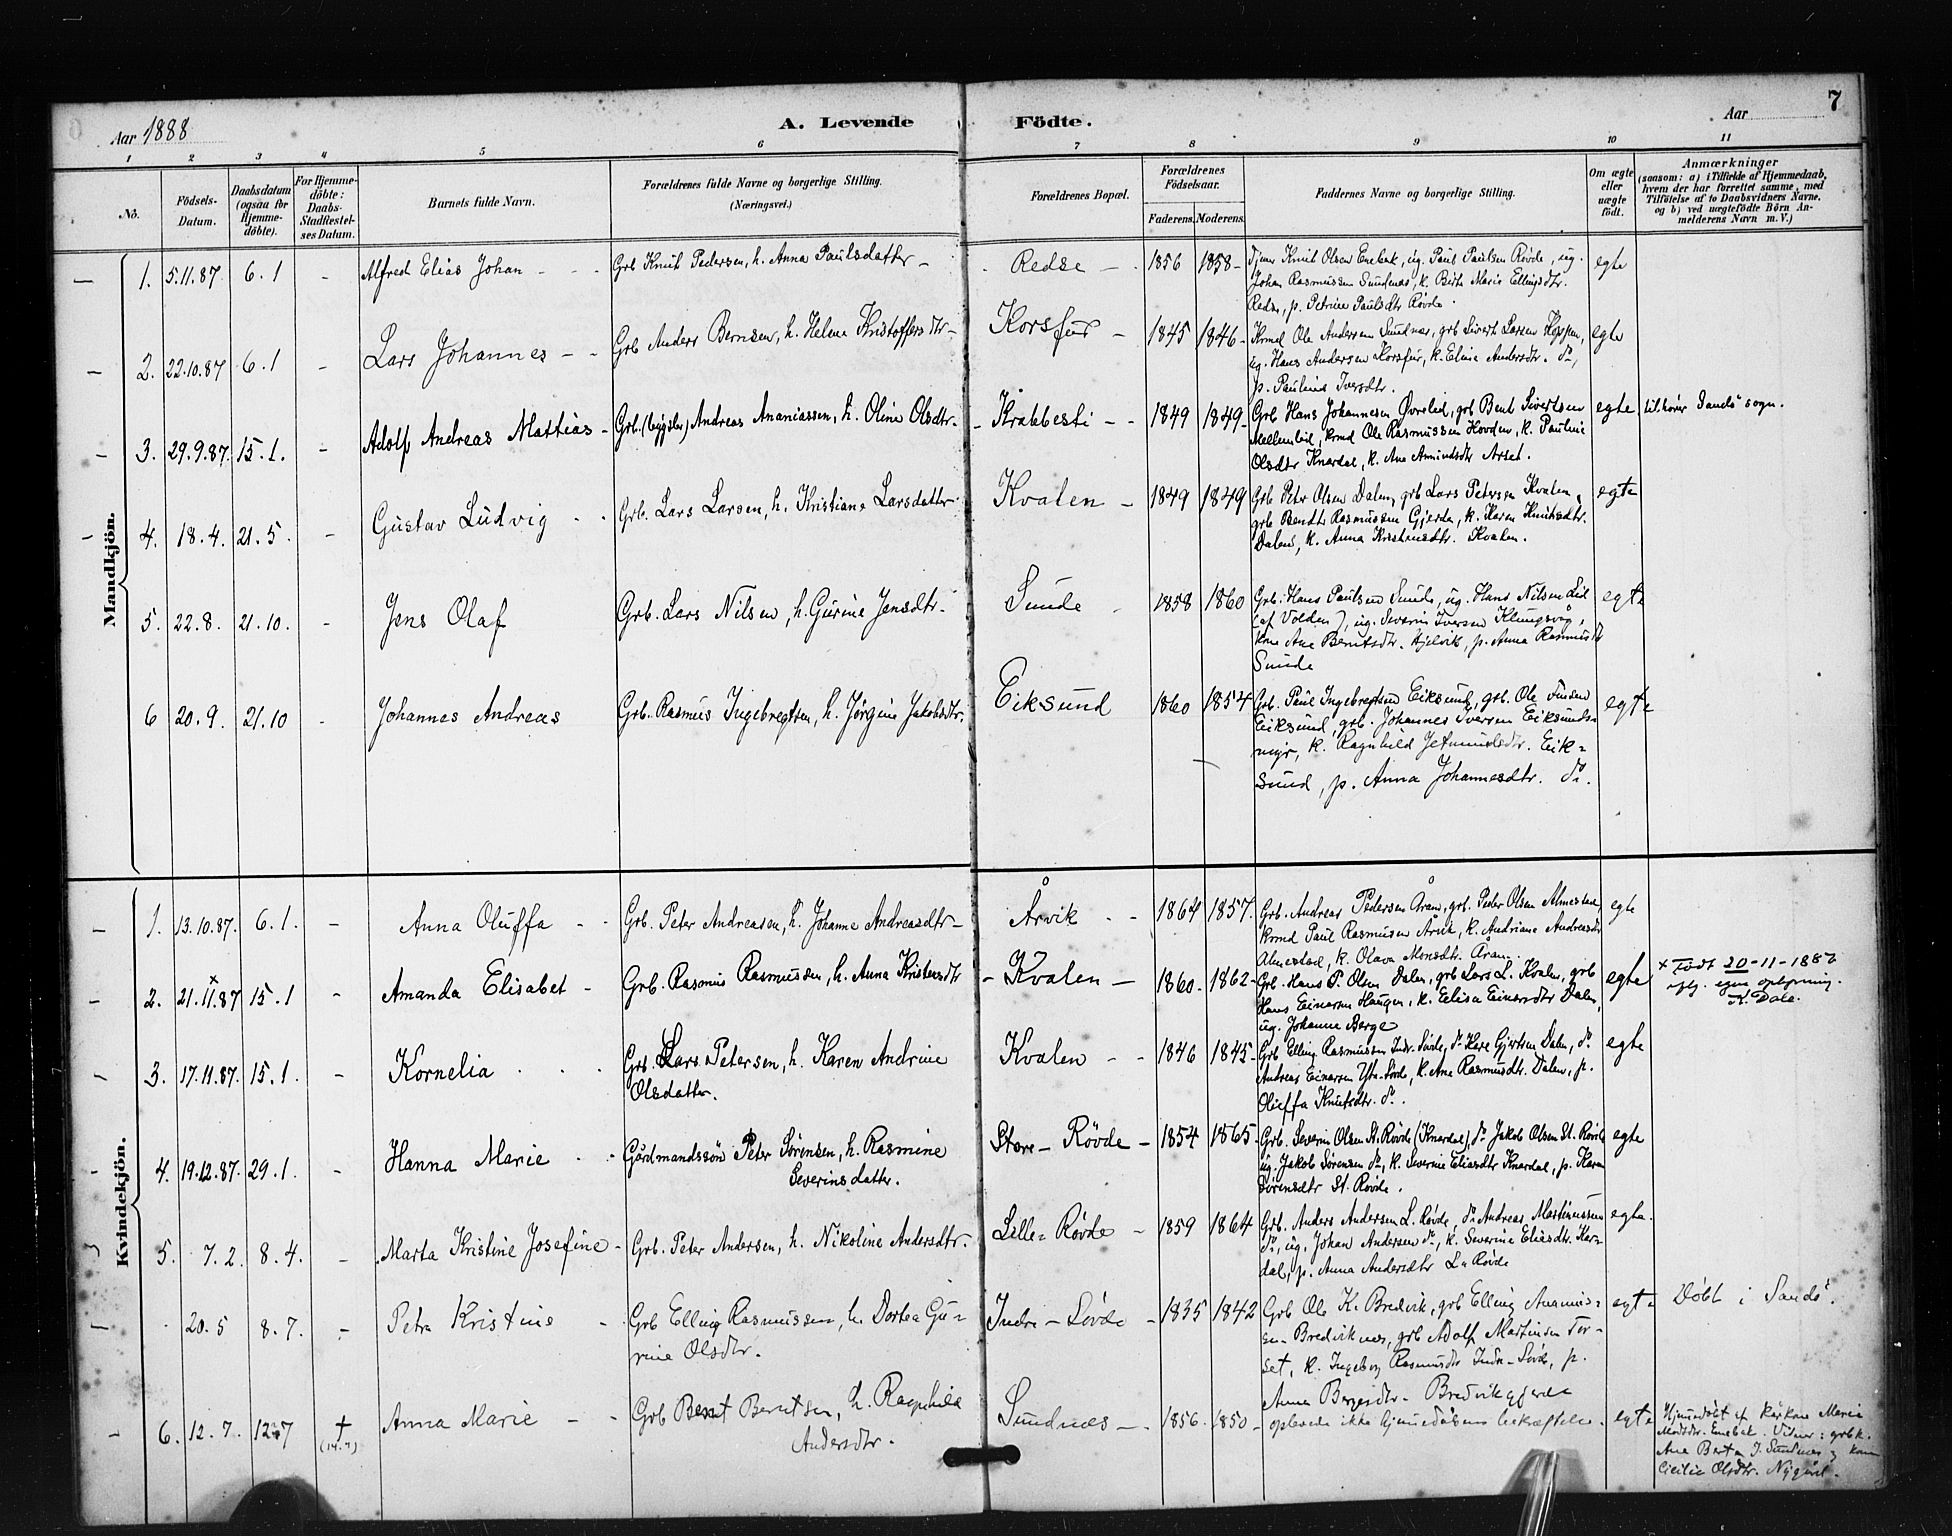 Aar 1888
A. Levende Födte.
Aar
7
1 2 3 4 5 6 7 8 9 10 11
No.
Födsels-Datum.
Daabsdatum (ogsaa for Hjemme-döbte).
For Hjemme-döbte: Daabs-Stadfæstel-ses Datum.
Barnets fulde Navn.
Forældrenes fulde Navne og borgerlige Stilling. (Næringsvei.)
Forældrenes Bopæl.
Forældrenes Födselsaar.
Faderens. Moderens.
Faddernes Navne og borgerlige Stilling.
Om ægte eller uægte födt.
Anmærkninger
(saasom: a) i Tilfælde af Hjemmedaab,
hvem der har forrettet samme, med
Tilföielse af to Daabsvidners Navne,
og b) ved uægtefödte Börn An-
melderens Navn m. V.)
Mandkjön.
1. 5.11.87. 6.1 - Alfred Elias Johan - - Grb Knut Pedersen, h. Anna Paulsdatter - Redse - 1856 1858 - Tjener Knut Olsen Enebak, ug. Paul Paulsen Røvde, ug. egte
Johan Rasmussen Sundnæs, k. Berte Marie Ellingsdtr.
Redse, p. Petrine Paulsdtr Røvde.
2. 22.10.87 6.1 - Lars Johannes - - Grb Anders Berntsen, h. Helene Kristoffersdtr - Korsfur - 1845 1846 - Krmd Ole Andersen Sundnæs, grb Sivert Larsen Koppen, egte
ug. Hans Andersen Korsfur, k. Eline Andersdtr. do,
p. Pauline Iversdtr.
3. 29.9.87. 15.1. - Adolf Andreas Mattias - Grb. (bygsler) Andreas Ananiassen, h. Oline Olsdtr. - Krabbesti - - 1849 1849 - Grb Hans Johannesen Øvrelid, grb Bent Sivertsen egte tilhører Sandö sogn.
Mellemlid, krmd Ole Rasmussen Hovden, k. Pauline
Olsdtr Knardal, k. Ane Amundsdtr Arset.
4. 18.4. 21.5. - Gustav Ludvig - - Grb. Lars Larsen, h. Kristiane Larsdatter - Kvalen - 1849 1849 Grb Peter Olsen Dalen, grb Lars Petersen Kvalen, egte
grb Bendt Rasmussen Gjerde, k. Karen Knutsdtr.
Dalen, k. Anna Kristensdtr. Kvalen.
5. 22.8. 21.10. - Jens Olaf Grb. Lars Nilsen, h. Gurine Jensdtr. Sunde 1858 1860 Grb. Hans Paulsen Sunde, ug. Hans Nilsen Lid egte
(af Volden), ug. Severin Iversen Klungsvig,
kone Ane Berntsdtr. Hjelvik, p. Anna Rasmusdtr
Sunde
6 20.9. 21.10 - Johannes Andreas Grb. Rasmus Ingebregtsen, h. Jørgine Jakobsdtr. Eiksund 1860 1854 Grb. Paul Ingebregtsen Eiksund, grb. Ole Finsen egte
Eiksund, grb. Johannes Iversen Eiksunds-
myr, k. Ragnhild Jetmundsdtr. Eik-
sund, p. Anna Johannesdtr. do.
Kvindekjön.
1. 13.10.87. 6.1. - Anna Oluffa - - Grb. Peter Andreasen, h. Johanne Andreasdtr - Årvik - - 1864 1857. Grb. Andreas Pedersen Åram, grb. Peder Olsen Almestad, egte
krmd Paul Rasmusen Årvik, k. Andriane Andreasdtr
Almestad, k. Olava Monsdtr. Åram.
2. 21.11.87 × 15.1 - Amanda Elisabet - Grb. Rasmus Rasmussen, h. Anna Kristensdtr - Kvalen - 1860. 1862 - Grb. Hans P. Olsen Dalen, grb Lars L. Kvalen, grb egte × Født 20-11-1887
Hans Einarsen Haugen, k. Elisa Einarsdtr Dalen, iflg. egen oplysning.
ug. Johanne Berge K. Dale.
3. 17.11.87. 15.1. - Kornelia . . . Grb. Lars Petersen, h. Karen Andrine Kvalen - - 1846 1845 - Grb Elling Rasmussen Indr. Sövde, do Kare Gjertsen Dalen, do. egte
Olsdatter. Andreas Einarsen Ytre-Sövde, k. Ane Rasmusdtr. Dalen, p.
Oluffa Knutsdtr. do.
4. 19.12.87. 29.1. - Hanna Marie - - Gårdmandssøn Peter Sörensen, h. Rasmine Store - Rövde - 1854 1865 - Grb. Severin Olsen St. Rövde (Knardal), do Jakob Olsen St. Rövde egte
Severinsdatter. ug. Jakob Sørensen do, k. Severine Eliasdtr Knardal, p. Karen
Sörensdtr St. Rövde.
5. 7.2. 8.4. - Marta Kristine Josefine - Grb. Peter Andersen, h. Nikoline Andersdtr. Lille = Rövde - 1859 1864 Grb. Anders Andersen L. Rövde, do Andreas Martinussen egte.
do, ug. Johan Andersen do, k. Severine Eliasdtr. Knar-
dal, p. Anna Andersdtr L. Rövde
20.5 8.7. - Petra Kristine - Grb Elling Rasmussen, h. Dortea Gu- Indre - Sövde - 1835 1842 Grb Ole K. Bredvik, grb Elling Ananias- egte Döbt i Sandö.
rine Olsdtr. sen Bredviknes, grb Adolf Martinsen For-
set, k. Ingeborg Rasmusdtr Indre-Sövde, p.
Anna Bergesdtr. Bredvikgjerde
6. 12.7. 12.7 † (14.7) Anna Marie - - Grb Bernt Berntsen, h. Ragnhild Sundnæs - 1856. 1850 - oplevede ikke hjemmedåbens bekræftelse. egte Hjemmedöbt af kårkone Marie
Andersdtr. Madsdtr. Enebak. Vidner: grbk.
Ane Berte J. Sundnæs og kone
Cicilie Olsdtr. Nygård.